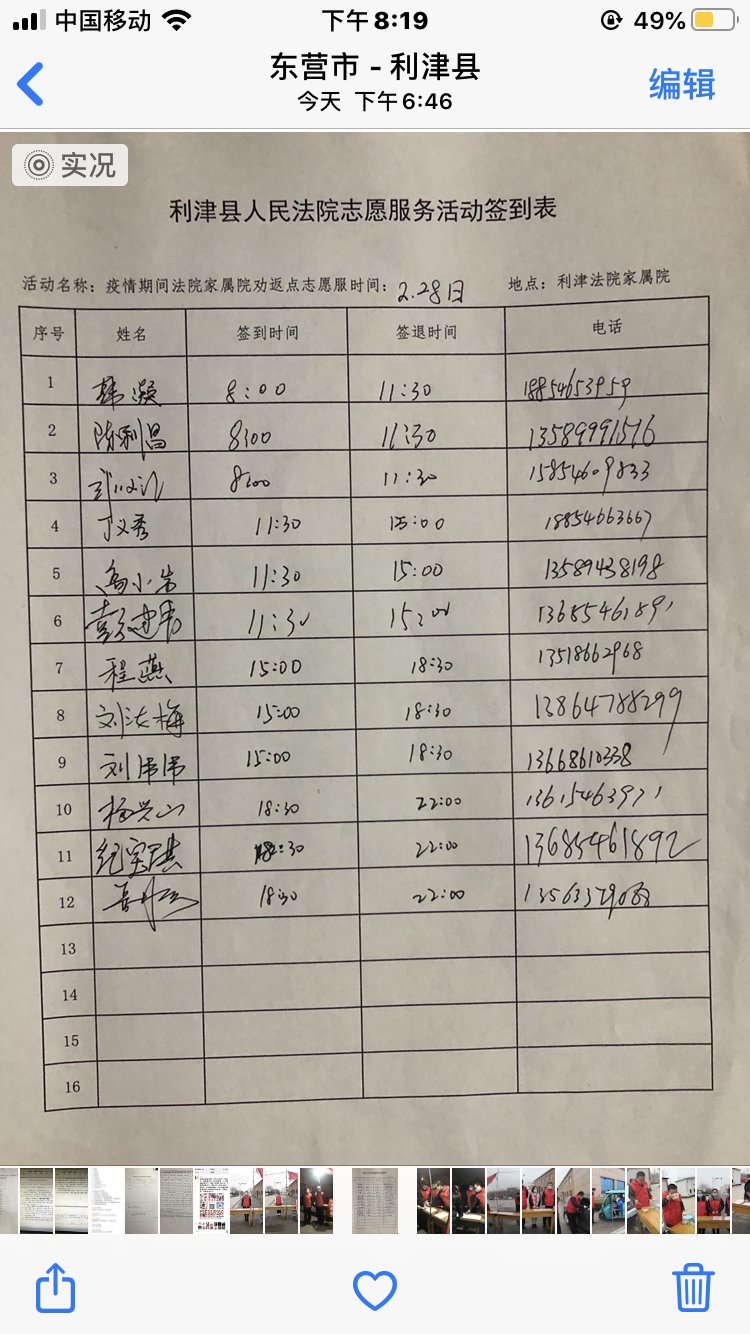 中国移动 下午8:19 49%
东营市 - 利津县
今天 下午6:46
编辑
实况
利津县人民法院志愿服务活动签到表
活动名称：疫情期间法院家属院劝返点志愿服时间：2.28日 地点：利津法院家属院
序号 姓名 签到时间 签退时间 电话
1 韩凝 8:00 11:30 18854653959
2 陈利昌 8:00 11:30 13589991576
3 8:00 11:30 15854609833
4 丁义秀 11:30 15:00 18854663667
5 冯小岩 11:30 15:00 13589438198
6 彭建伟 11:30 15:00 13685461891
7 程燕 15:00 18:30 13518662968
8 刘洪梅 15:00 18:30 13864788299
9 刘伟伟 15:00 18:30 13668610338
10 杨兴山 18:30 22:00 13615463971
11 纪宾祺 18:30 22:00 13685461892
12 18:30 22:00
13
14
15
16